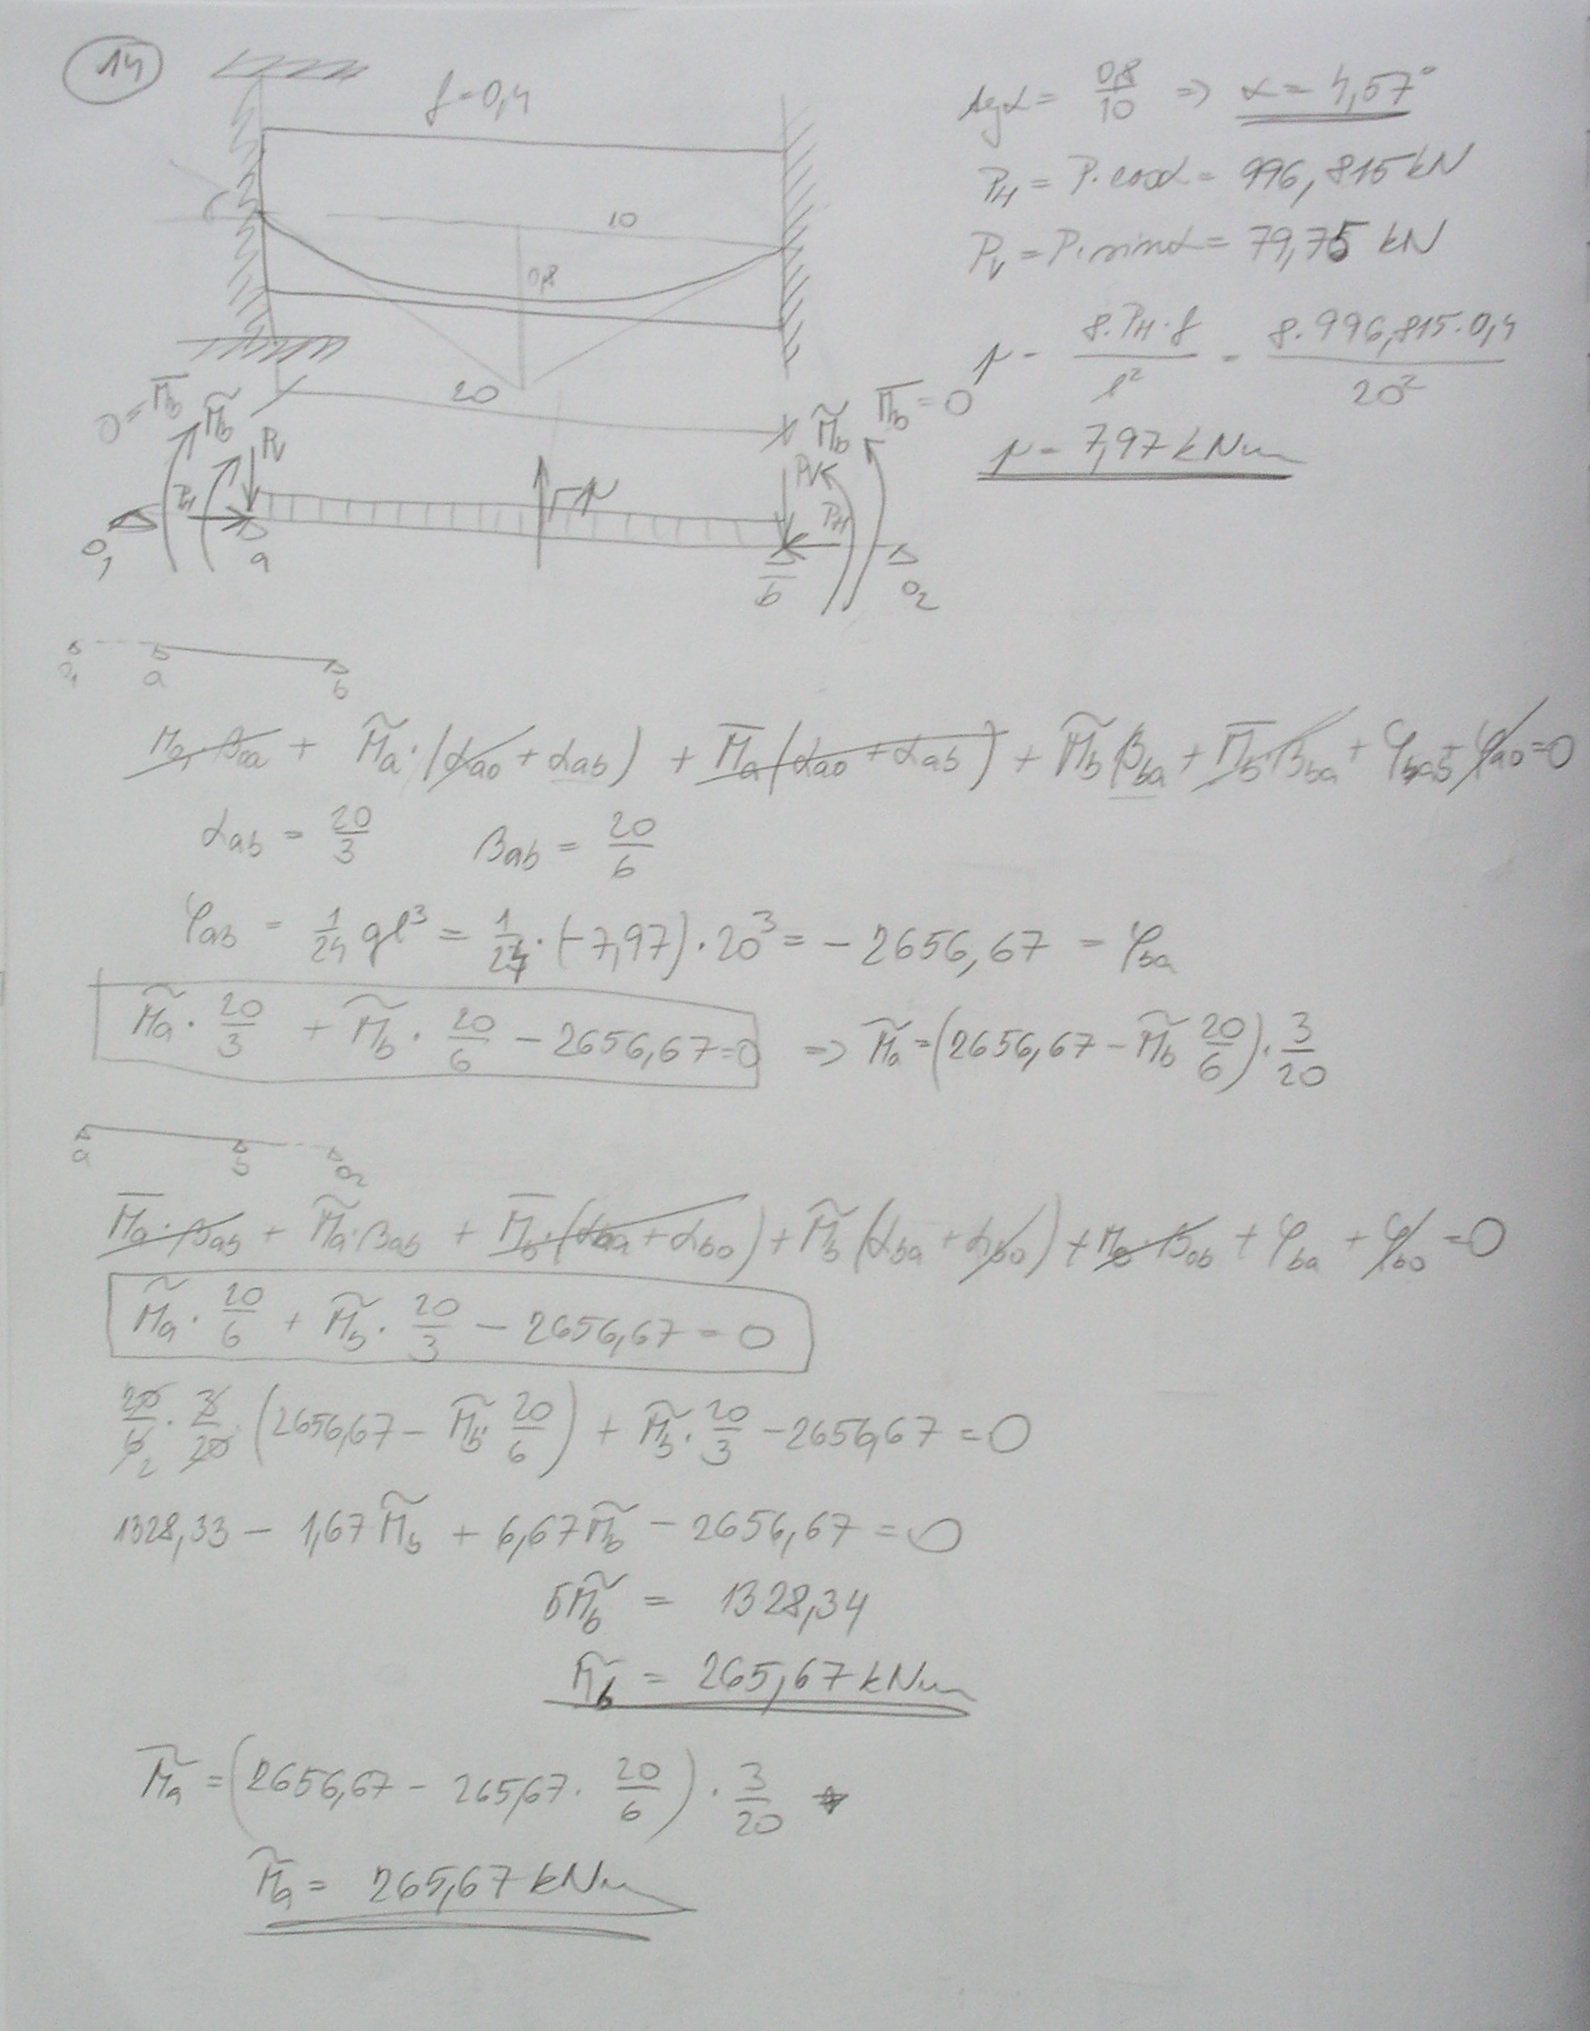 14
f=0,4
10
0,8
20
tgα = 0,8/10 ⇒ α = 4,57°
P_H = P·cosα = 996,815 kN
P_V = P·sinα = 79,75 kN
p = 8·P_H·f/l² = 8·996,815·0,4/20²
p = 7,97 kNm
0 = M̅_b M̃_b P_V
P_H
0₁ a
p
M̃_b M̅_b = 0
P_V P_H
b 0₂
0₁ a b
M_{0₁}·β_{0a} + M̃_a·(α_{a0} + α_{ab}) + M̅_a(α_{a0} + α_{ab}) + M̃_b β_{ba} + M̅_b·β_{ba} + φ_{ab} + φ_{a0} = 0
α_{ab} = 20/3 β_{ab} = 20/6
φ_{ab} = 1/24 gl³ = 1/24·(−7,97)·20³ = −2656,67 = φ_{ba}
M̃_a·20/3 + M̃_b·20/6 − 2656,67 = 0 ⇒ M̃_a = (2656,67 − M̃_b 20/6)·3/20
a b 0₂
M̅_a·β_{ab} + M̃_a·β_{ab} + M̅_b·(α_{ba} + α_{b0}) + M̃_b(α_{ba} + α_{b0}) + M_0·β_{0b} + φ_{ba} + φ_{b0} = 0
M̃_a·20/6 + M̃_b·20/3 − 2656,67 = 0
20/6 2·3/20·(2656,67 − M̃_b·20/6) + M̃_b·20/3 − 2656,67 = 0
1328,33 − 1,67M̃_b + 6,67M̃_b − 2656,67 = 0
5M̃_b = 1328,34
M̃_b = 265,67 kNm
M̃_a = (2656,67 − 265,67·20/6)·3/20
M̃_a = 265,67 kNm